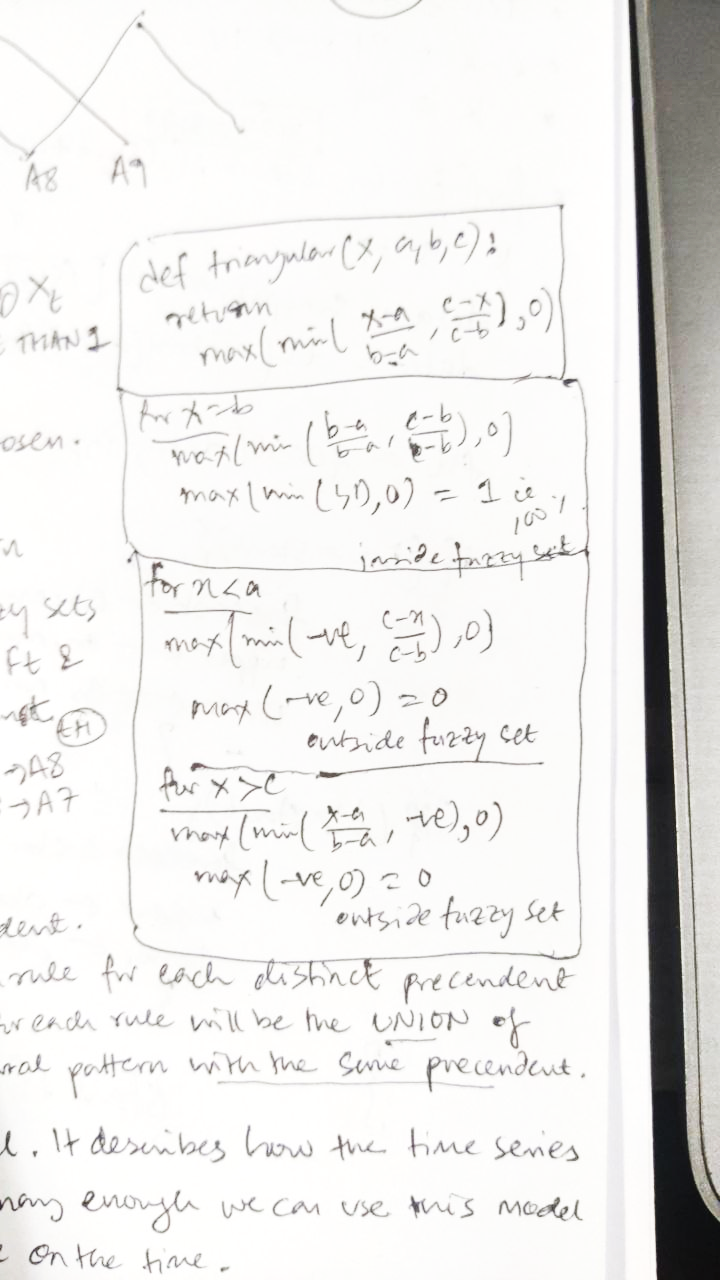 A8 A9
def triangular(x, a, b, c):
return
max(min( x-a/b-a , c-x/c-b ), 0)
Xt
THAN 1
for x=b
max(min ( b-a/b-a , c-b/c-b ), 0)
max(min (1,1), 0) = 1 ie
100%
inside fuzzy set
osen.
for x<a
max(min(-ve, c-x/c-b ), 0)
max (-ve, 0) = 0
outside fuzzy set
zy sets
Ft &
→A8
→A7
for x>c
max(min( x-a/b-a , -ve), 0)
max (-ve, 0) = 0
outside fuzzy set
dent.
rule for each distinct precendent
each rule will be the UNION of
ral pattern with the same precendent.
It describes how the time series
many enough we can use this model
on the time.